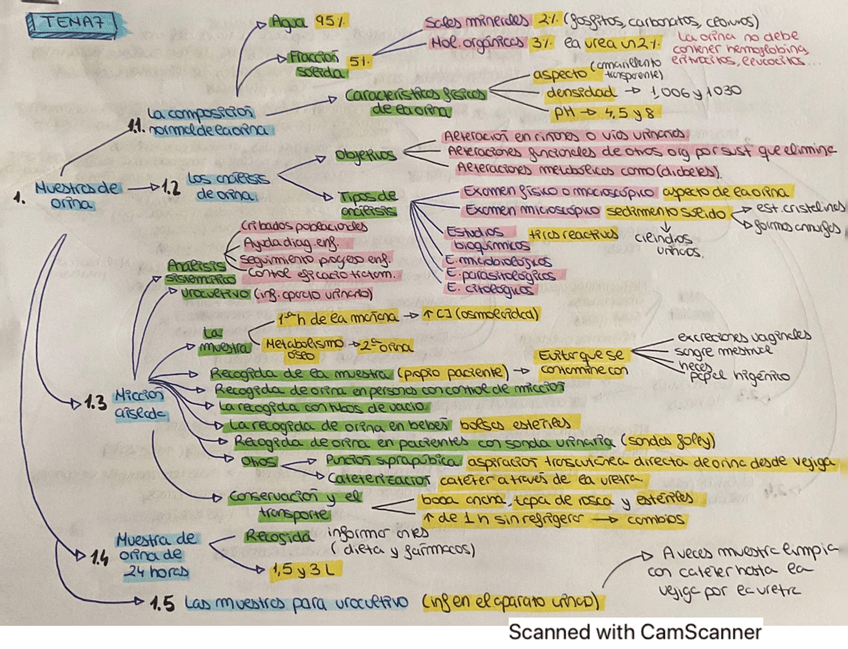 TEMA 7
1. Muestras de orina
1.1. La composición normal de la orina
Agua 95%
Fracción sólida 5%
Sales minerales 2% (fosfatos, carbonatos, cloruros)
Mol. orgánicas 3% la urea un 2%
La orina no debe contener hemoglobina, eritrocitos, leucocitos...
Características físicas de la orina
aspecto (amarillento transparente)
densidad → 1,006 y 1030
PH → 4,5 y 8
1.2 Los análisis de orina
Objetivos
Alteración en riñones o vías urinarias
Alteraciones funcionales de otros org por sust que elimine
Alteraciones metabólicas como (diabetes)
Tipos de análisis
Examen físico o macroscópico aspecto de la orina
Examen microscópico sedimento sólido
est. cristalinas
formas
cilindros
Estudios bioquímicos tiras reactivas
E. microbiológicos
E. parasitológicos
E. citológicos
1.3 Micción aislada
Análisis sistemático
Cribados poblaciones
Ayuda diag. enf.
Seguimiento progreso enf.
Control eficacia tratam.
Urocultivo (inf. aparato urinario)
La muestra
1ª h de la mañana → ↑ [ ] (osmolaridad)
Metabolismo óseo → 2ª orina
Recogida de la muestra (propio paciente) → Evitar que se contamine con
excreciones vaginales
sangre menstrual
heces
Papel higiénico
Recogida de orina en personas con control de micción
La recogida con tubos de vacío
La recogida de orina en bebés bolsas estériles
Recogida de orina en pacientes con sonda urinaria (sondas foley)
Otros
Punción suprapúbica aspiración transcutánea directa de orina desde vejiga
Cateterización catéter a través de la uretra
Conservación y el transporte
boca ancha, tapa de rosca y estériles
↑ de 1 h sin refrigerar → cambios
1.4 Muestra de orina de 24 horas
Recogida informar antes (dieta y fármacos)
1,5 y 3 L
1.5 Las muestras para urocultivo (inf en el aparato urinario)
A veces muestra limpia
con catéter hasta la
vejiga por la uretra
Scanned with CamScanner